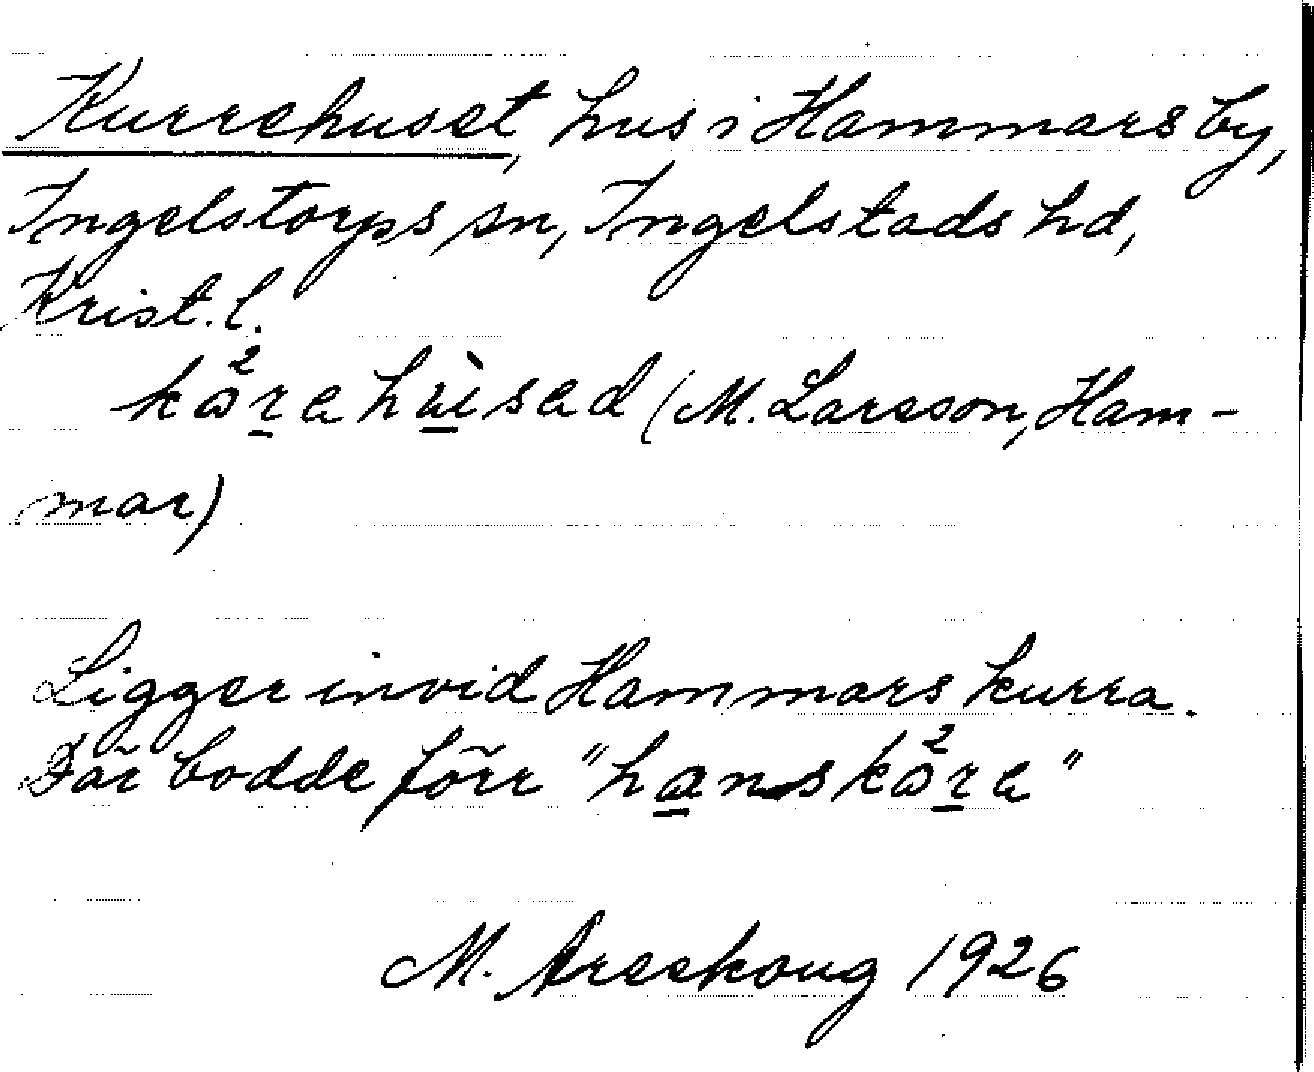 Kurrehuset, hus i Hammars by,
Ingelstorps sn, Ingelstads hd,
Krist. l.
kå²rahùsad (M. Larsson, Ham-
mar)
Ligger invid Hammars kurra.
Där bodde förr "hans kå²ra"
M. Areskoug 1926